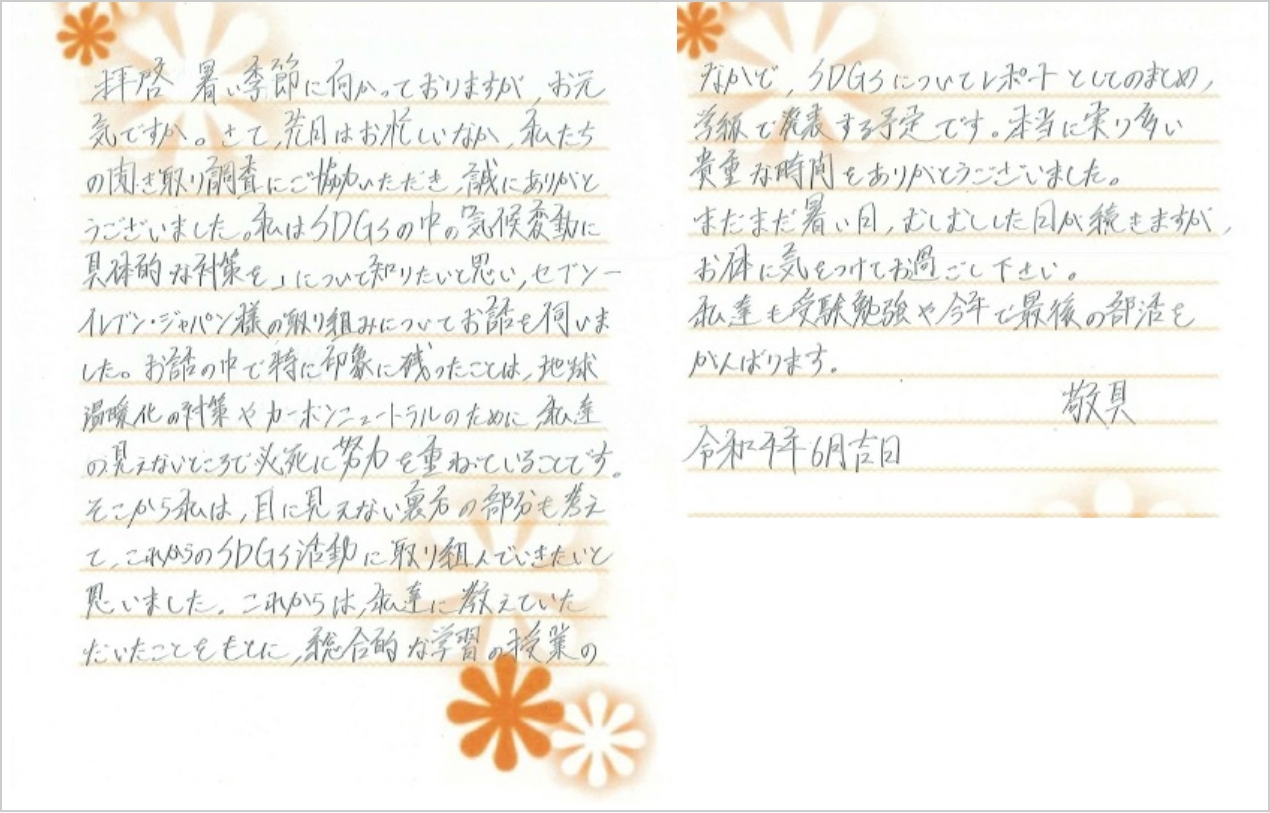 拝啓 暑い季節に向かっておりますが、お元
気ですか。さて、先月はお忙しいなか、私たち
の聞き取り調査にご協力いただき、誠にありがと
うございました。私はSDGsの中の「気候変動に
具体的な対策を」について知りたいと思い、セブン－
イレブン・ジャパン様の取り組みについてお話を伺いま
した。お話の中で特に印象に残ったことは、地球
温暖化の対策やカーボンニュートラルのために、私達
の見えないところで必死に努力を重ねていることです。
そこから私は、目に見えない裏方の部分も考え
て、これからのSDGs活動に取り組んでいきたいと
思いました。これからは、私達に教えていた
だいたことをもとに、総合的な学習の授業の
なかで、SDGsについてレポートとしてのまとめ、
学級で発表する予定です。本当に実り多い
貴重な時間をありがとうございました。
まだまだ暑い日、むしむしした日が続きますが、
お体に気をつけてお過ごし下さい。
私達も受験勉強や今年で最後の部活を
がんばります。
敬具
令和4年6月吉日